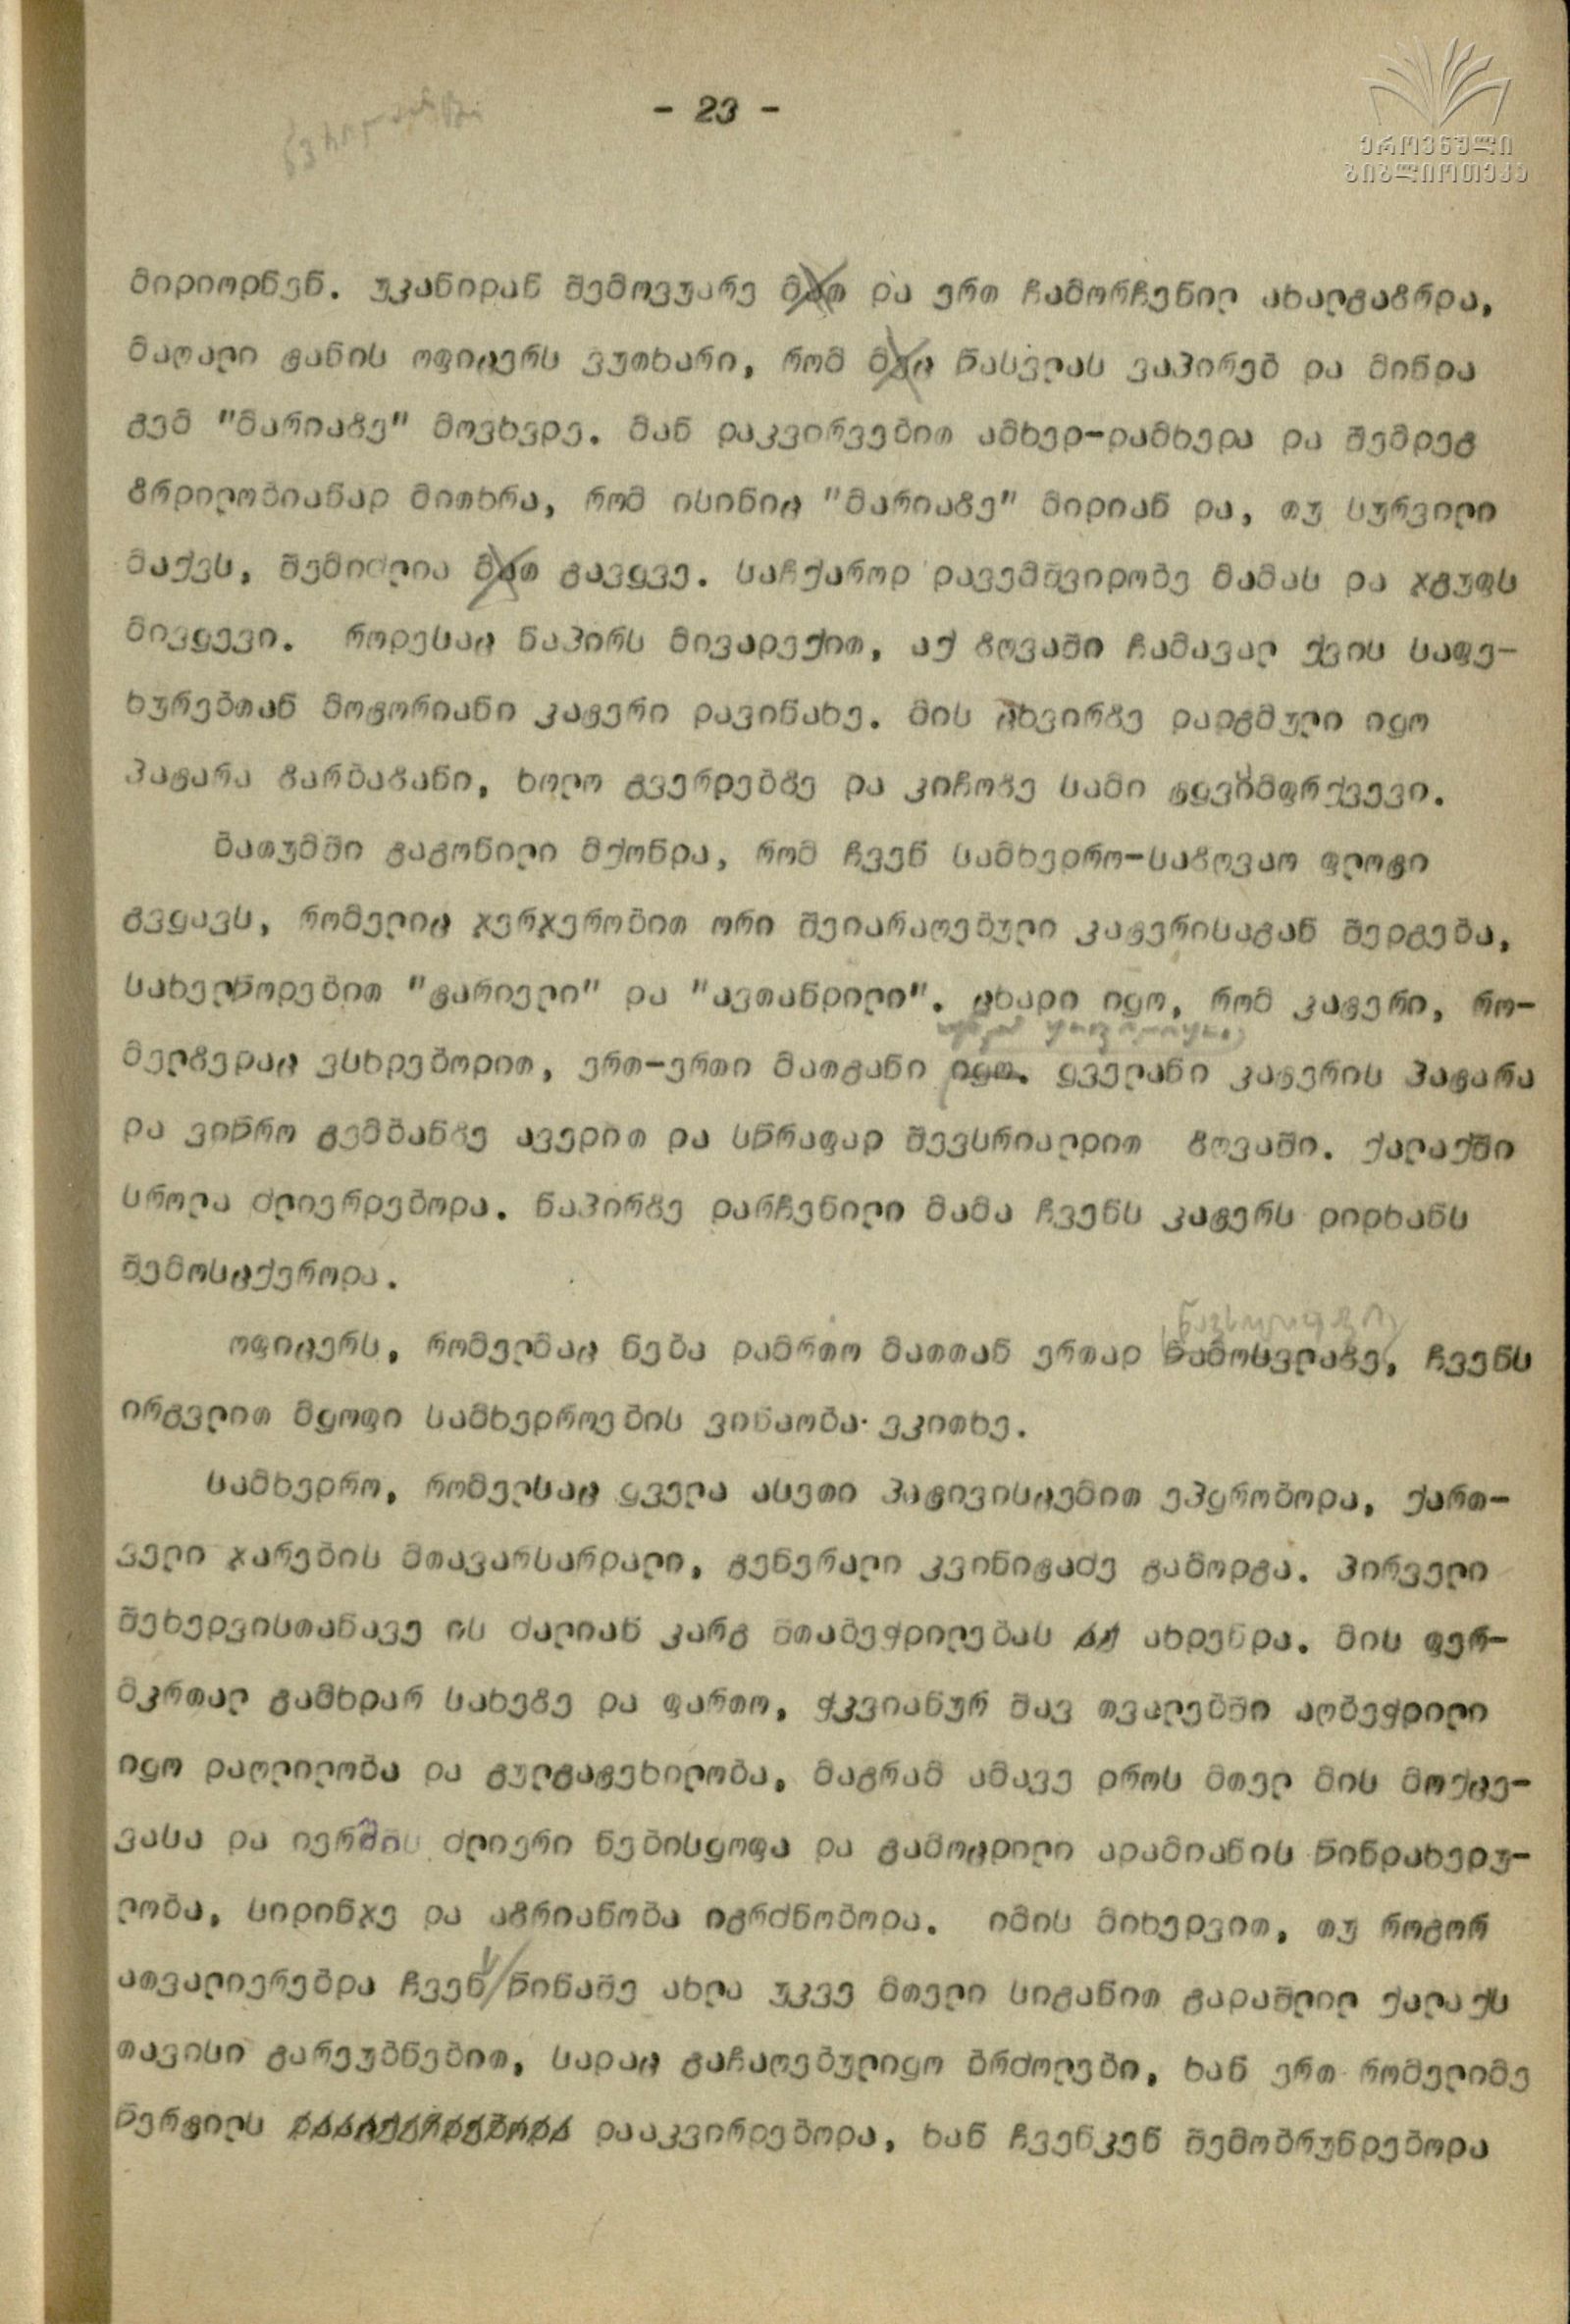 - 23 -
ეროვნული
ბიბლიოთეკა
მიდიოდნენ. უკანიდან შემოვუარე მათ და ერთ ჩამორჩენილ ახალგაზრდა,
მაღალი ტანის ოფიცერს ვუთხარი, რომ მეც წასვლას ვაპირებ და მინდა
გემ "მარიაზე" მოვხვდე. მან დაკვირვებით ამხედ-დამხედა და შემდეგ
ზრდილობიანად მითხრა, რომ ისინიც "მარიაზე" მიდიან და, თუ სურვილი
მაქვს, შემიძლია მათ გავყვე. საჩქაროდ დავემშვიდობე მამას და ჯგუფს
მივყევი. როდესაც ნაპირს მივადექით, აქ ზღვაში ჩამავალ ქვის საფე-
ხურებთან მოტორიანი კატერი დავინახე. მის ცხვირზე დადგმული იყო
პატარა ზარბაზანი, ხოლო გვერდებზე და კიჩოზე სამი ტყვიამფრქვევი.
ბათუმში გაგონილი მქონდა, რომ ჩვენ სამხედრო-საზღვაო ფლოტი
გვყავს, რომელიც ჯერჯერობით ორი შეიარაღებული კატერისაგან შედგება,
სახელწოდებით "ტარიელი" და "ავთანდილი". ცხადი იყო, რომ კატერი, რო-
მელზედაც ვსხდებოდით, ერთ-ერთი მათგანი იყო. ყველანი კატერის პატარა
და ვიწრო გემბანზე ავედით და სწრაფად შევსრიალდით ზღვაში. ქალაქში
სროლა ძლიერდებოდა. ნაპირზე დარჩენილი მამა ჩვენს კატერს დიდხანს
შემოსცქეროდა.
ოფიცერს, რომელმაც ნება დამრთო მათთან ერთად წამოსვლაზე, ჩვენს
ირგვლით მყოფი სამხედროების ვინაობა ვკითხე.
სამხედრო, რომელსაც ყველა ასეთი პატივისცემით ეპყრობოდა, ქართ-
ველი ჯარების მთავარსარდალი, გენერალი კვინიტაძე გამოდგა. პირველი
შეხედვისთანავე ის ძალიან კარგ შთაბეჭდილებას ახდენდა. მის ფერ-
მკრთალ გამხდარ სახეზე და ფართო, ჭკვიანურ შავ თვალებში აღბეჭდილი
იყო დაღლილობა და გულგატეხილობა, მაგრამ ამავე დროს მთელ მის მოქცე-
ვასა და იერში ძლიერი ნებისყოფა და გამოცდილი ადამიანის წინდახედუ-
ლობა, სიდინჯე და აზრიანობა იგრძნობოდა. იმის მიხედვით, თუ როგორ
ათვალიერებდა ჩვენს წინაშე ახლა უკვე მთელი სიგანით გადაშლილ ქალაქს
თავისი გარეუბნებით, სადაც გაჩაღებულიყო ბრძოლები, ხან ერთ რომელიმე
წერტილს დააკვირდებოდა, ხან ჩვენკენ შემობრუნდებოდა